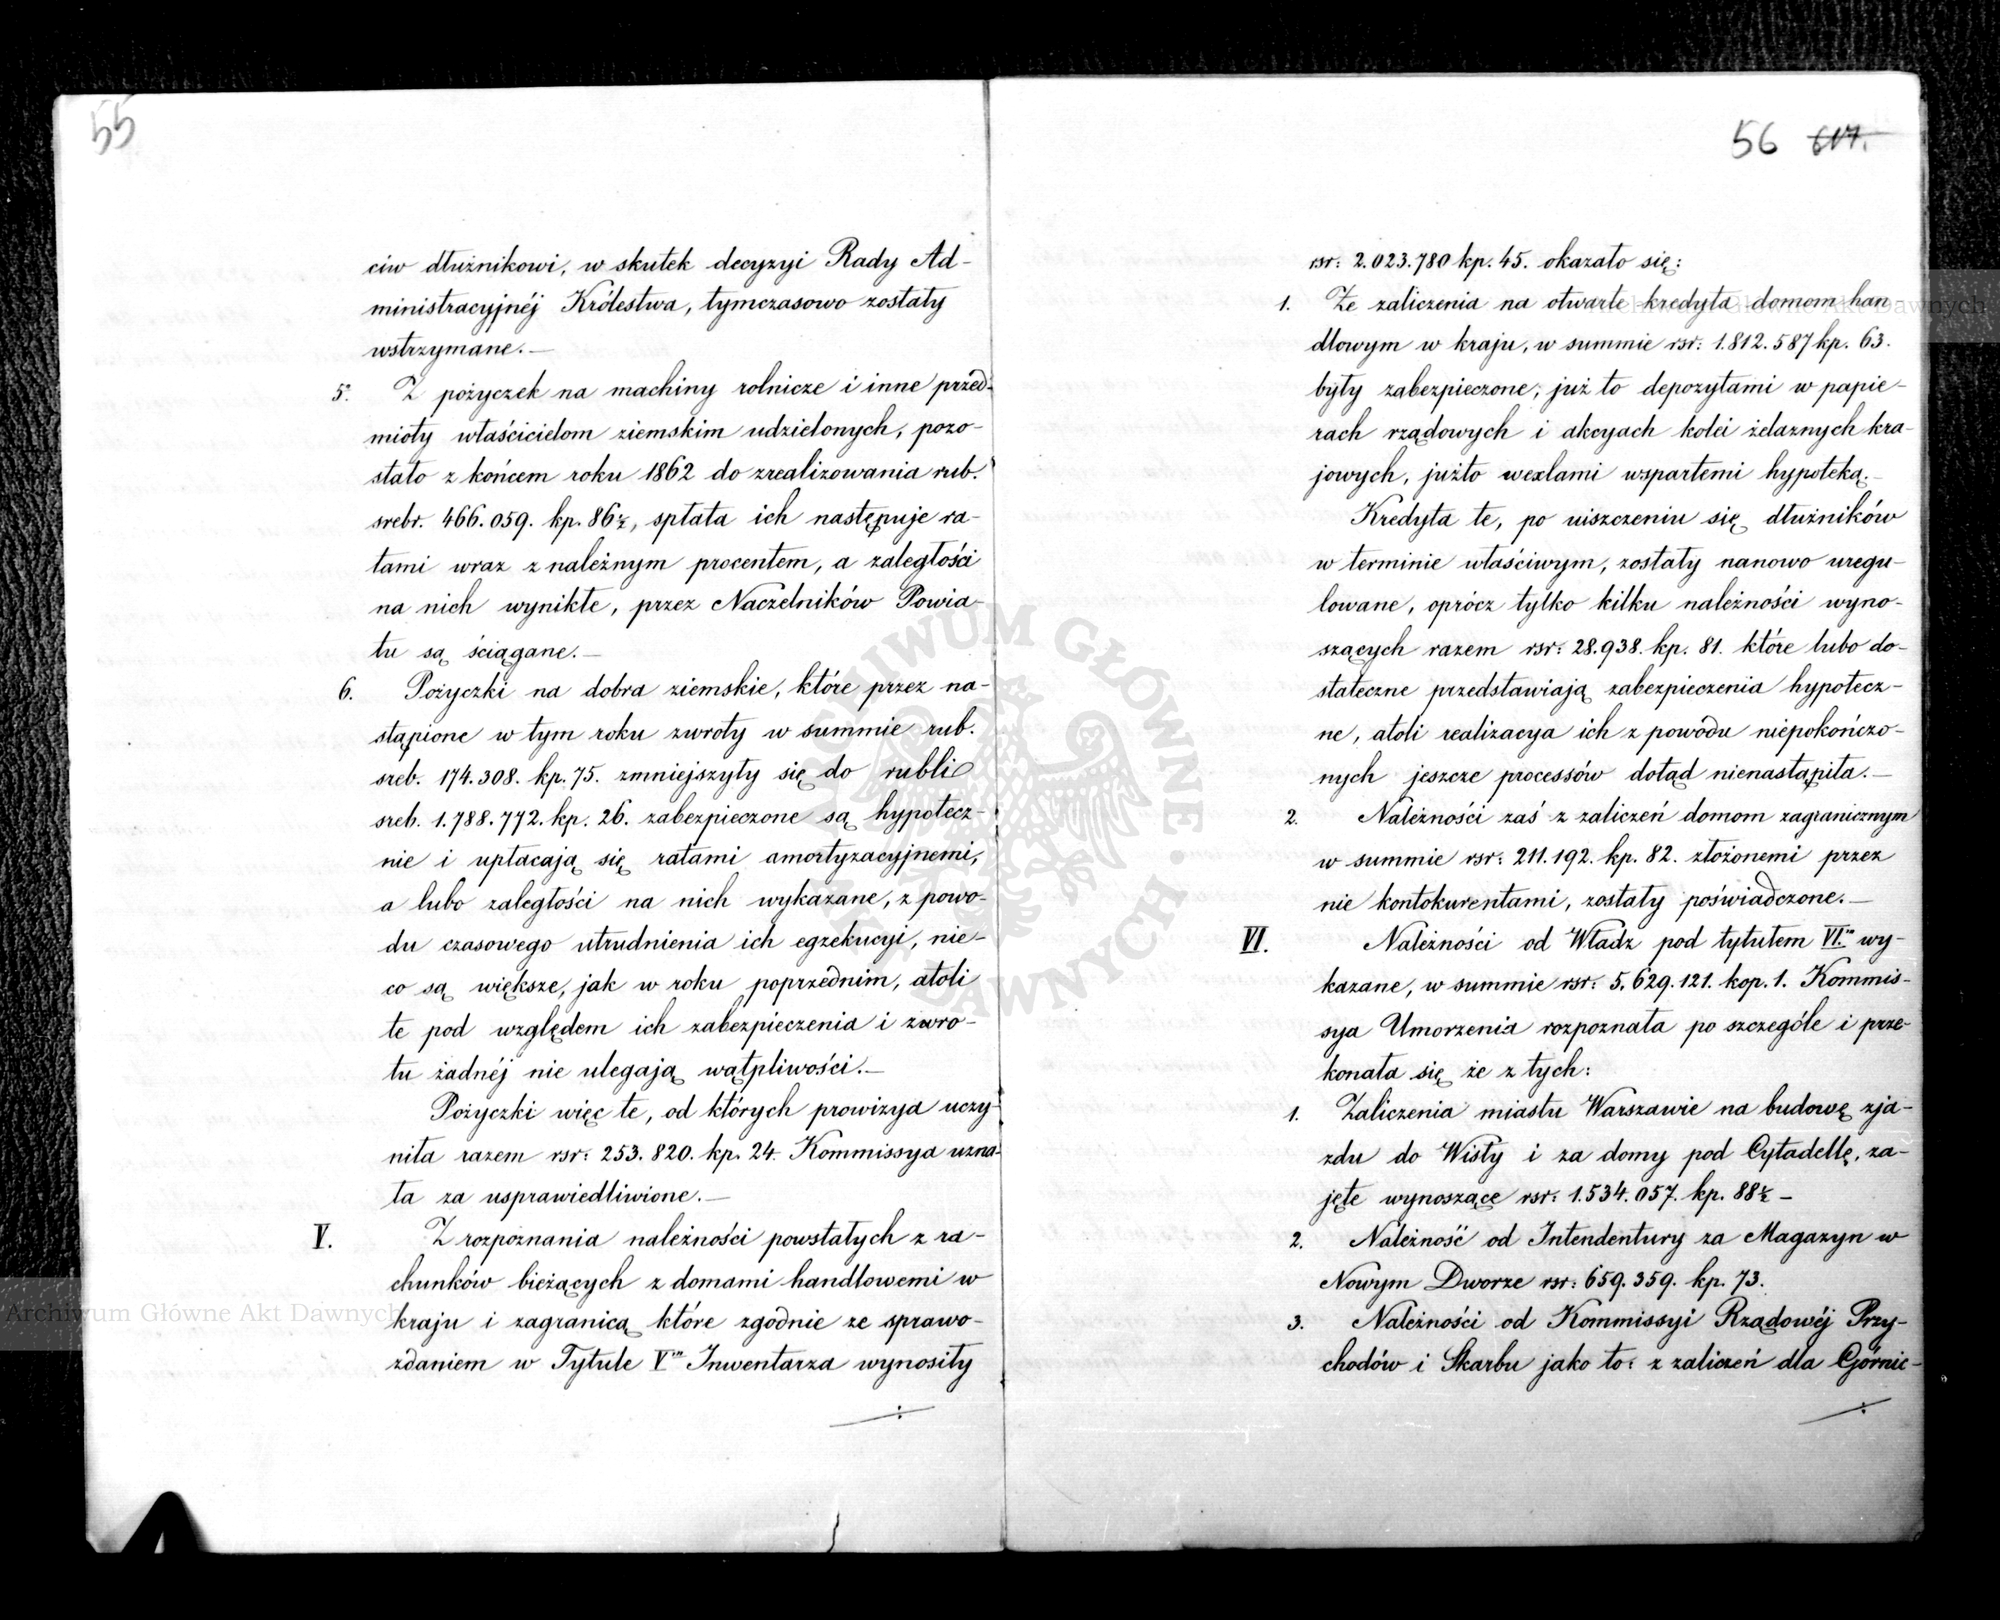 55
ciw dłużnikowi, w skutek decyzyi Rady Ad-
ministracyjnéj Królestwa, tymczasowo zostały
wstrzymane.—
5. Z pożyczek na machiny rolnicze i inne przed-
mioty właścicielom ziemskim udzielonych, pozo-
stało z końcem roku 1862 do zrealizowania rub.
srebr. 466.059. kp. 86½, spłata ich następuje ra-
tami wraz z należnym procentem, a zaległości
na nich wynikłe, przez Naczelników Powia-
tu są ściągane.—
6. Pożyczki na dobra ziemskie, które przez na-
stąpione w tym roku zwroty w summie rub.
sreb. 174.308. kp. 75. zmniejszyły się do rubli
sreb. 1.788.772. kp. 26. zabezpieczone są hypotecz-
nie i upłacają się ratami amortyzacyjnemi,
a lubo zaległości na nich wykazane, z powo-
du czasowego utrudnienia ich egzekucyi, nie-
co są większe, jak w roku poprzednim, atoli
te pod względem ich zabezpieczenia i zwro-
tu żadnéj nie ulegają wątpliwości.—
Pożyczki więc te, od których prowizya uczy-
niła razem rsr: 253.820. kp. 24. Kommissya uzna-
ła za usprawiedliwione.—
V. Z rozpoznania należności powstałych z ra-
chunków bieżących z domami handlowemi w
kraju i zagranicą które zgodnie ze sprawo-
zdaniem w Tytule Vm Inwentarza wynosiły
56 617.
rsr: 2.023.780 kp. 45. okazało się:
1. Że zaliczenia na otwarte kredyta domom han
dlowym w kraju, w summie rsr: 1.812.587 kp. 63.
były zabezpieczone, już to depozytami w papie-
rach rządowych i akcyach kolei żelaznych kra-
jowych, jużto wexlami wspartemi hypoteką.—
Kredyta te, po uiszczeniu się dłużników
w terminie właściwym, zostały nanowo uregu-
lowane, oprócz tylko kilku należności wyno-
szących razem rsr: 28.938. kp. 81. które lubo do-
stateczne przedstawiają zabezpieczenia hypotecz-
ne, atoli realizacya ich z powodu niepokończo-
nych jeszcze processów dotąd nienastąpiła.—
2. Należności zaś z zaliczeń domom zagranicznym
w summie rsr: 211.192. kp. 82. złożonemi przez
nie kontokurentami, zostały poświadczone.—
VI. Należności od Władz pod tytułem VI.m wy-
kazane, w summie rsr: 5.629.121. kop. 1. Kommis-
sya Umorzenia rozpoznała po szczególe i prze-
konała się że z tych:
1. Zaliczenia miastu Warszawie na budowę zja-
zdu do Wisły i za domy pod Cytadellę, za-
jęte wynoszące rsr: 1.534.057. kp. 88½ –
2. Należność od Intendentury za Magazyn w
Nowym Dworze rsr: 659.359. kp. 73.
3. Należności od Kommissyi Rządowéj Przy-
chodów i Skarbu jako to: z zaliczeń dla Górnic-
Archiwum Główne Akt Dawnych
Archiwum Główne Akt Dawnych
ARCHIWUM GŁÓWNE AKT DAWNYCH